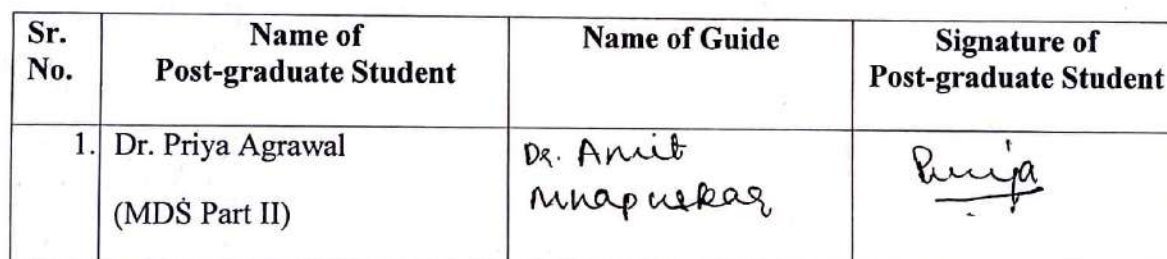 Sr. No.
Name of Post-graduate Student
Name of Guide
Signature of Post-graduate Student
1.
Dr. Priya Agrawal
(MDS Part II)
Dr. Amit
Mhapuskar
Priya